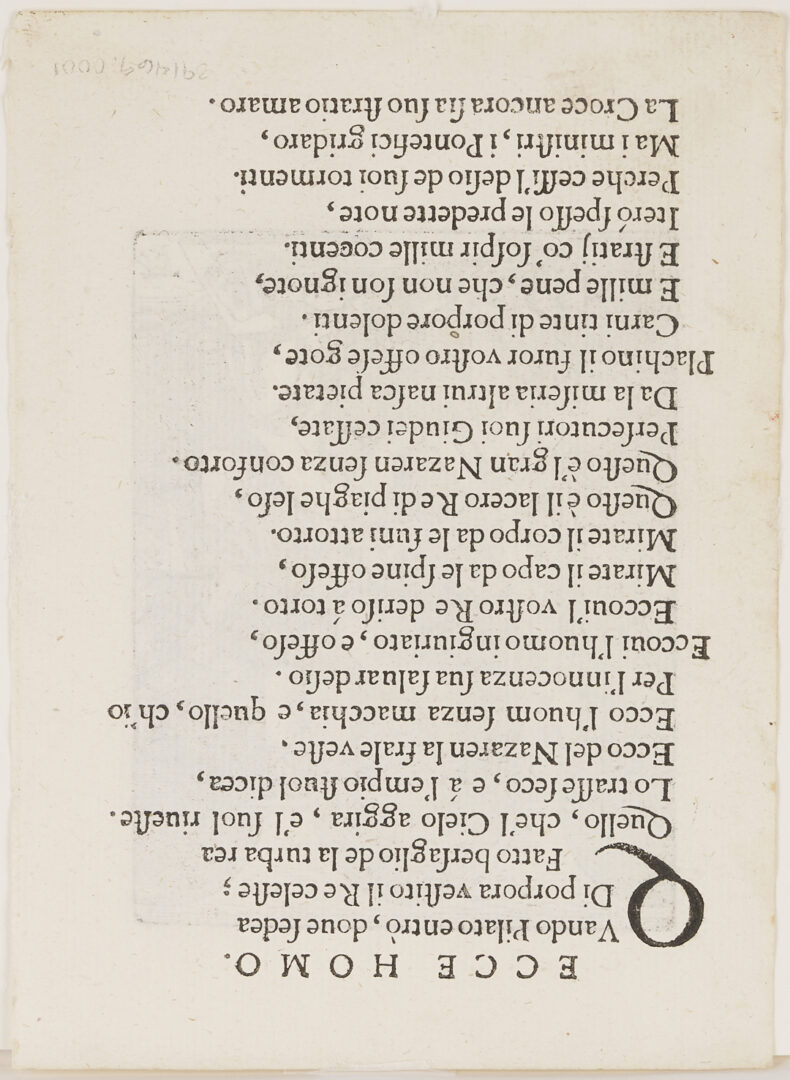 ECCE HOMO.
QVando Pilato entrò, doue sedea
Di porpora vestito il Re celeste;
Fatto bersaglio de la turba rea
Quello, che'l Cielo aggira, e'l suol riueste.
Lo trasse seco, e á l'empio stuol dicea,
Ecco del Nazaren la frale veste.
Ecco l'huom senza macchia, e quello, ch'io
Per l'innocenza sua saluar desio.
Eccoui l'huomo ingiuriato, e offeso,
Eccoui'l vostro Re deriso á torto.
Mirate il capo da le spine offeso,
Mirate il corpo da le funi attorto.
Questo è il lacero Re di piaghe leso,
Questo è'l gran Nazaren senza conforto.
Persecutori suoi Giudei cessate,
Da la miseria altrui nasca pietate.
Plachino il furor vostro offese gote,
Carni tinte di porpore dolenti.
E mille pene, che non son ignote,
E stratij co' sospir mille cocenti.
Iteró spesso le predette note,
Perche cessi'l desio de suoi tormenti.
Ma i ministri, i Pontefici gridaro,
La Croce ancora sia suo stratio amaro.
391469.0001